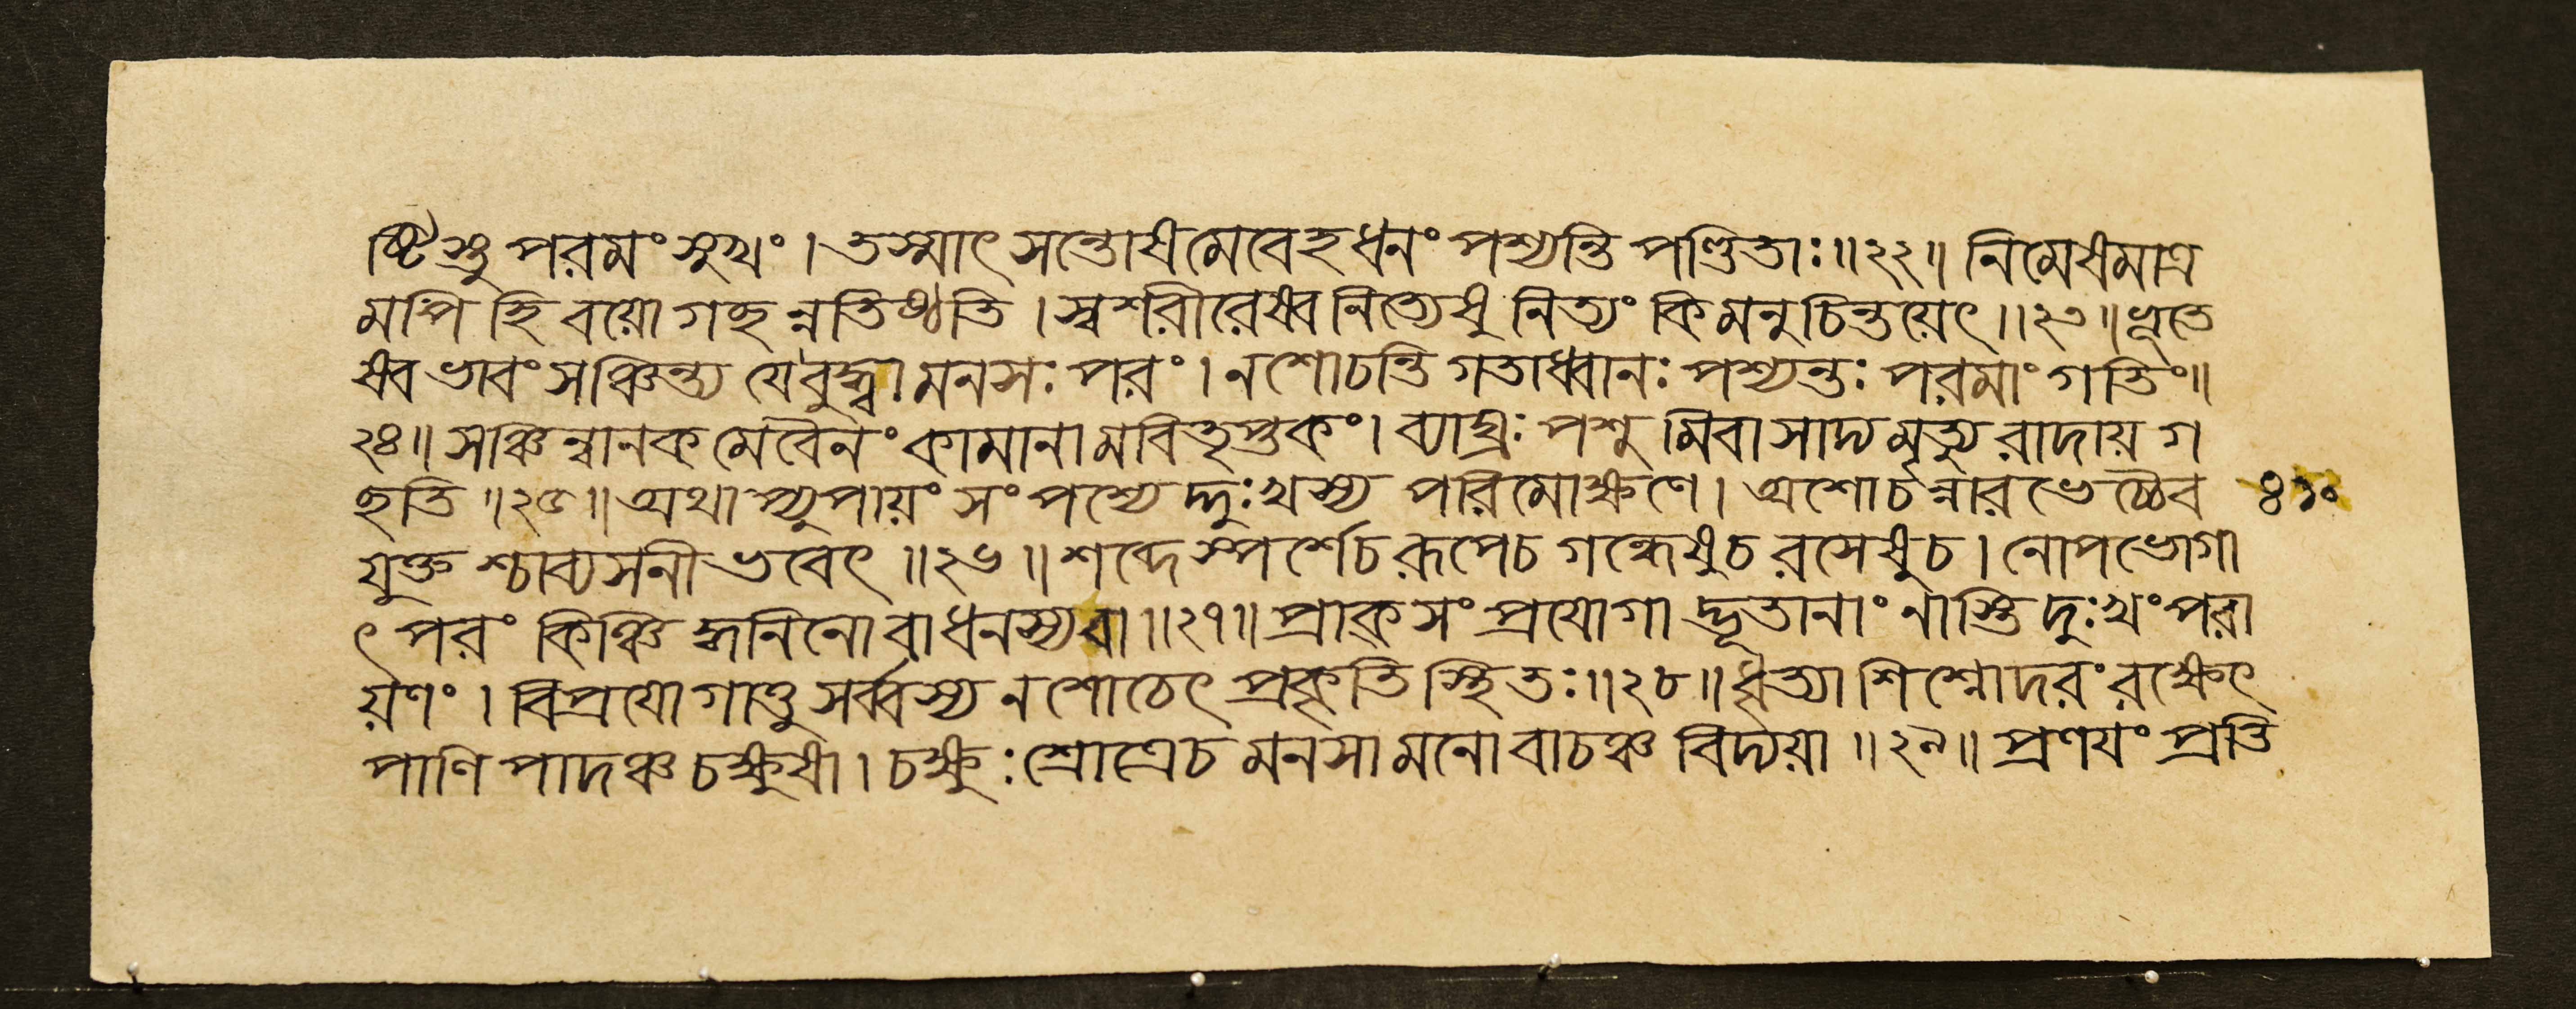 ষ্টিস্তু পরমং সুখং । তস্মাৎ সন্তোষমেবেহ ধনং পশ্যন্তি পণ্ডিতাঃ ॥ ২২ ॥ নিমেষমাত্র
মপি হি বয়ো গছন্নতিষ্ঠতি । স্বশরীরেষ্বনিত্যেষু নিত্যং কিমনুচিন্তয়েৎ ॥ ২৩ ॥ ভূতে
ষ্বভাবং সঞ্চিন্ত্য যে বুদ্ধ্বা মনসঃ পরং । ন শোচন্তি গতাধ্বানঃ পশ্যন্তঃ পরমাং গতিং ॥
২৪ ॥ সঞ্চিন্বানকমেবৈনং কামানামবিতৃপ্তকং । ব্যাঘ্রঃ পশুমিবাসাদ্য মৃত্যুরাদায় গ
ছতি ॥ ২৫ ॥ অথাপ্যুপায়ং সংপশ্যেদ্দুঃখস্য পরিমোক্ষণে । অশোচন্নারভেচ্চৈব ৪১০
যুক্তশ্চাব্যসনী ভবেৎ ॥ ২৬ ॥ শব্দে স্পর্শে চ রূপে চ গন্ধেষু চ রসেষু চ । নোপভোগা
ৎ পরং কিঞ্চিদ্ধনিনো বাধনস্য বা ॥ ২৭ ॥ প্রাক্ সংপ্রযোগাদ্ভূতানাং নাস্তি দুঃখং পরা
য়ণং । বিপ্রযোগাত্তু সর্ব্বস্য ন শোচেৎ প্রকৃতিস্থিতঃ ॥ ২৮ ॥ ধৃত্যা শিশ্নোদরং রক্ষেৎ
পাণিপাদঞ্চ চক্ষুষা । চক্ষুঃ শ্রোত্রে চ মনসা মনো বাচঞ্চ বিদ্যয়া ॥ ২৯ ॥ প্রণযং প্রতি